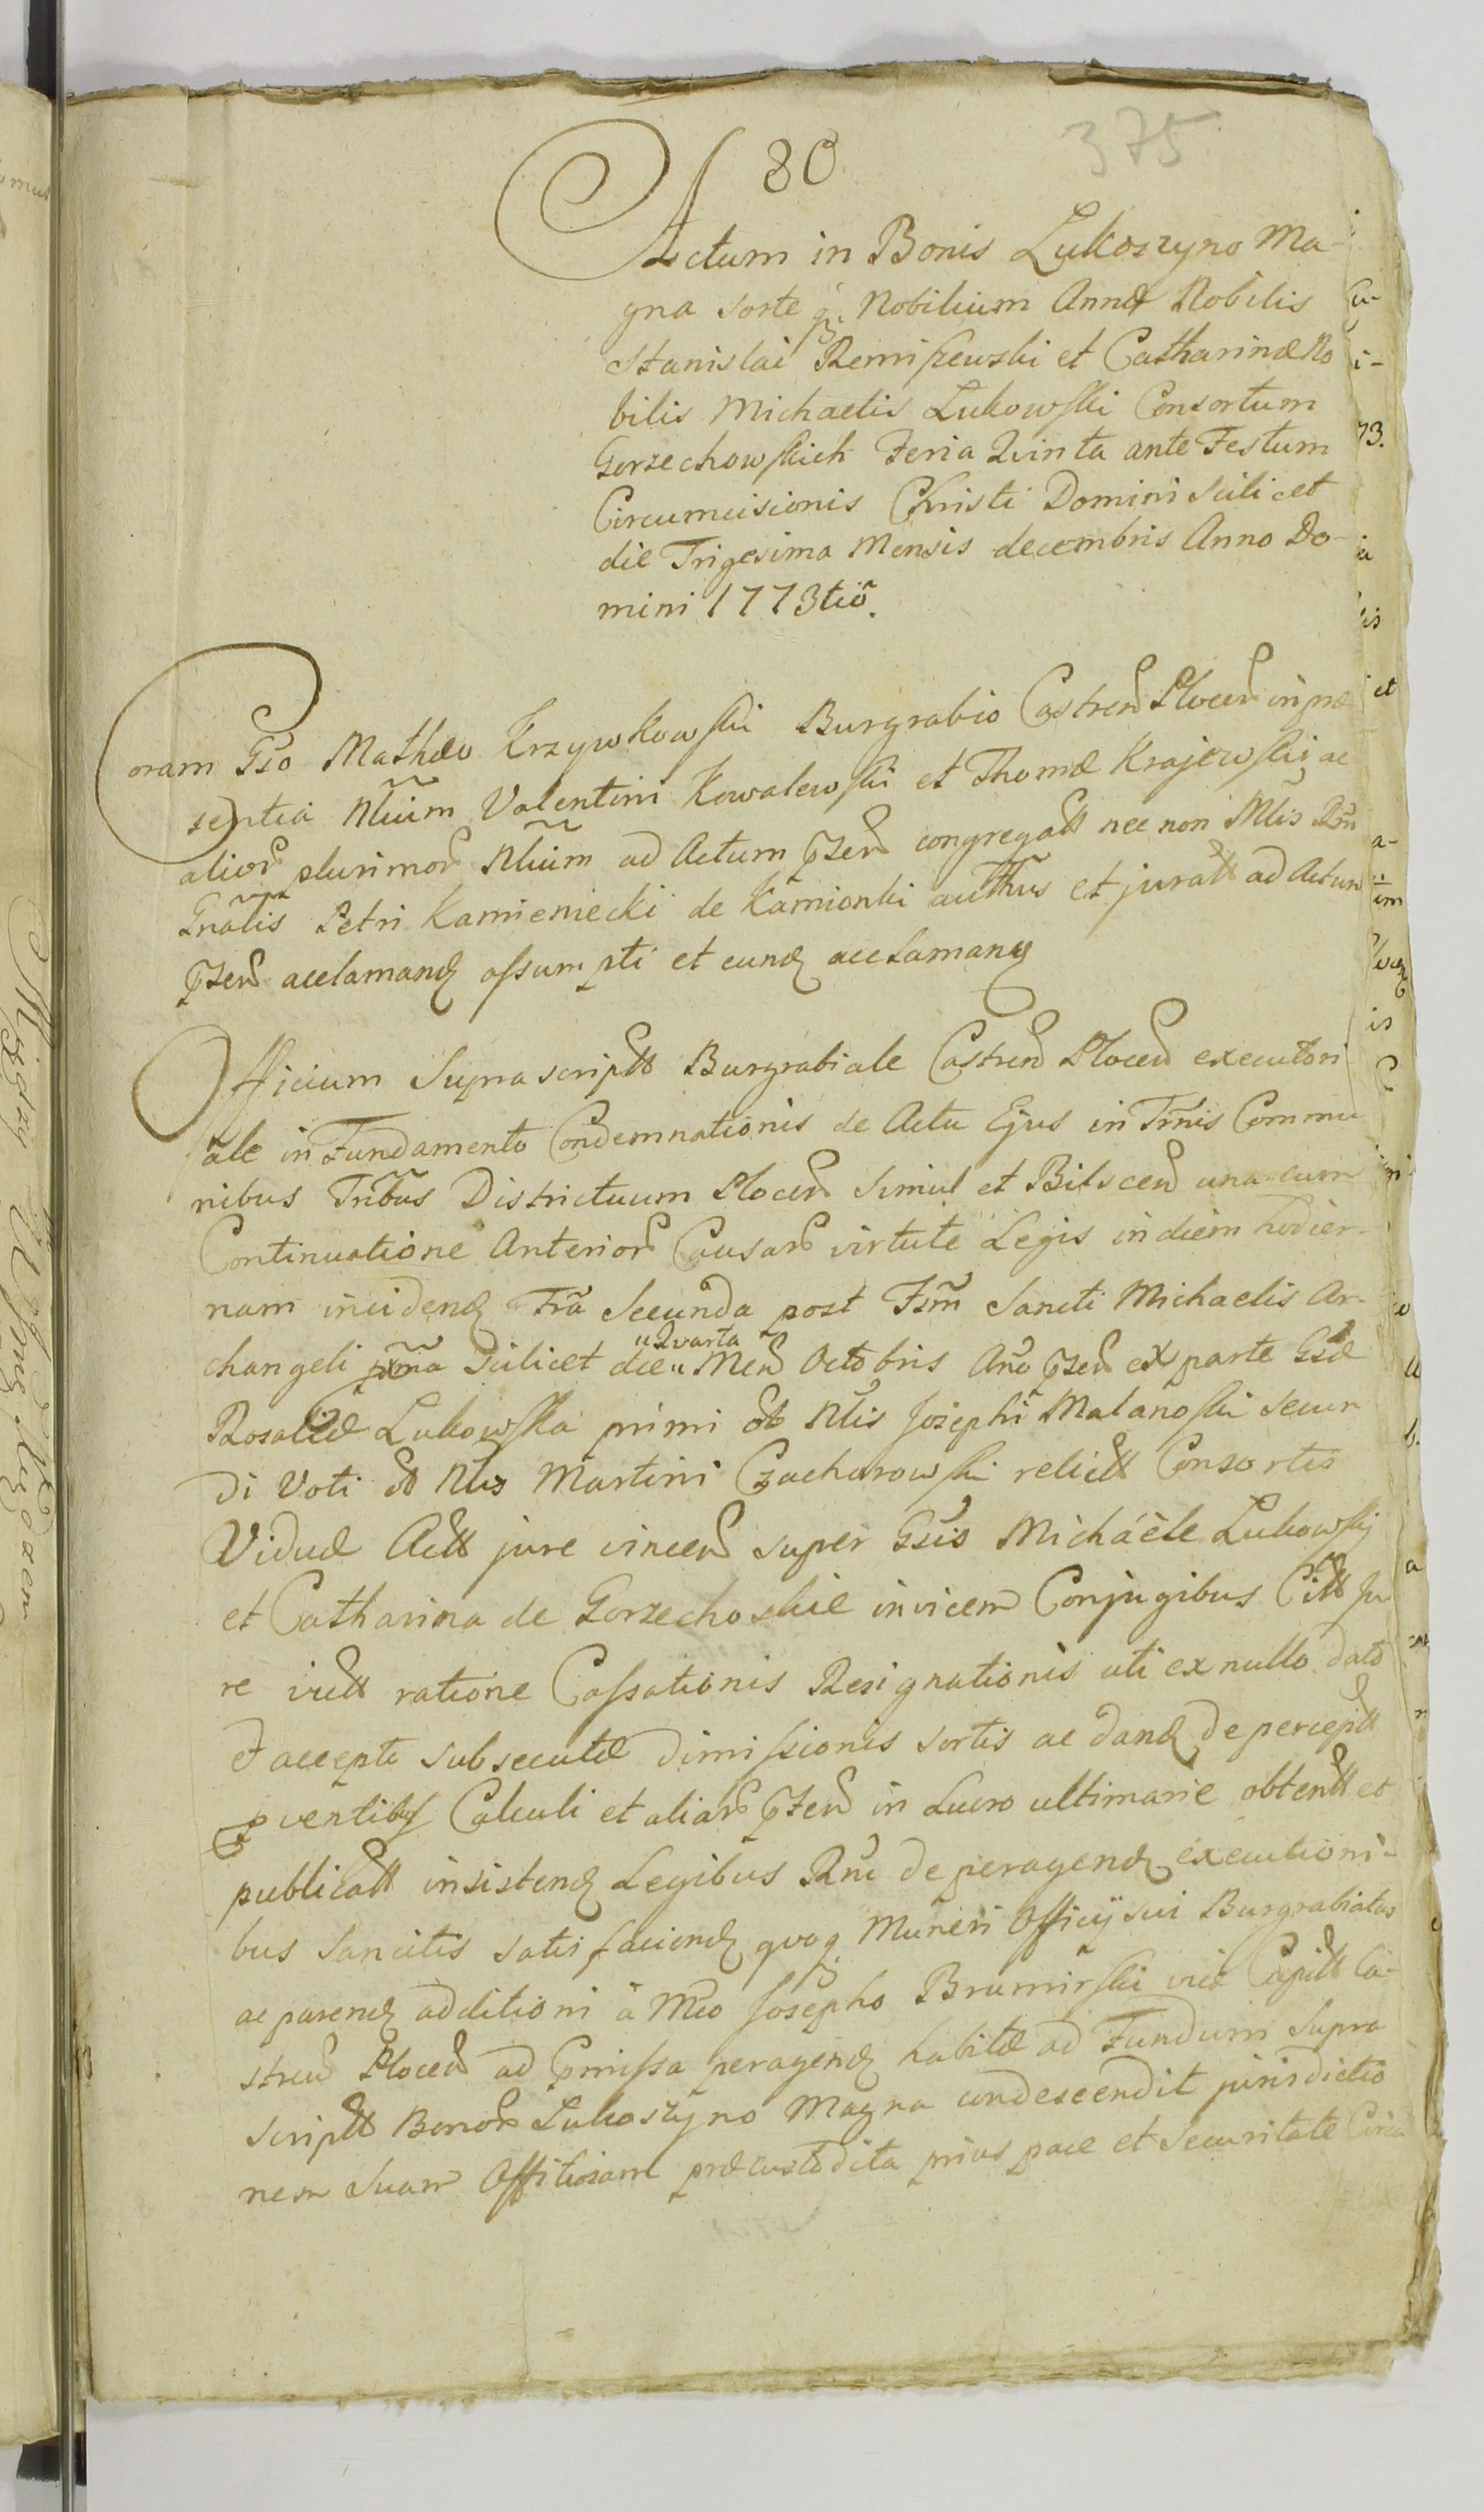 80
375
Actum in Bonis Lukoszyno Ma-
gna sorte q. Nobilium Annæ Nobilis
Stanislai Remiszewski et Catharinæ No
bilis Michaelis Lukowski Consortum
Gorzechowskich Feria Quinta ante Festum
Circumcisionis Christi Domini scilicet
die Trigesima Mensis decembris Anno Do-
mini 1773tio.
Coram Gso Mathæo Krzywkowski Burgrabio Castren Plocen in præ
sentia Nlium Valentini Kowalewski et Thomæ Krajewski ac
alior plurimor Nlium ad Actum pszen congregatt nec non Mlis Rni
Gnalis Petri Kamieniecki de Kamionki authus et juratt ad Actum
pszen acclamand assumpti et eund acclamans
Officium Suprascriptt Burgrabiale Castren Plocen executori
ale in Fundamento Condemnationis de Actu Ejus in Trnis Commu
nibus Tribus Districtuum Plocen simul et Bilscen una cum
Continuatione Anterior Causar virtute Legis in diem hodier-
nam inciden Fria Secunda post Fsm Sancti Michaelis Ar-
changeli pxma scilicet die "Quarta" Men Octobris Ano pszen ex parte Gsæ
Rosaliæ Lukowska primi olt Nlis Josephi Malanoski secun
di Voti olt Nlis Martini Czacharowski relictt Consortis
Viduæ Actt jure vincen super Gsis Michaele Lukowski
et Catharina de Gorzechoskie invicem Conjugibus Citt Ju
re victt ratione Cassationis Resignationis uti ex nullo dato
et accepto subsecutæ dimissionis sortis ac dand de perceptt
pventibus Calculi et aliar pszen in Lucro ultimarie obtentt et
publicatt insistend Legibus Rni de peragend executioni-
bus Sancitis satisfaciend quoq Muneri Officij sui Burgrabiatus
ac parend additioni à Mco Josepho Bromirski vice Capitt Ca-
stren Plocen ad pmissa peragend habitæ ad Fundum Supra
scriptt Bonor Lukoszyno Magna condescendit jurisdictio
nem suam Offitiosam præcustodita prius pace et Securitate Circa